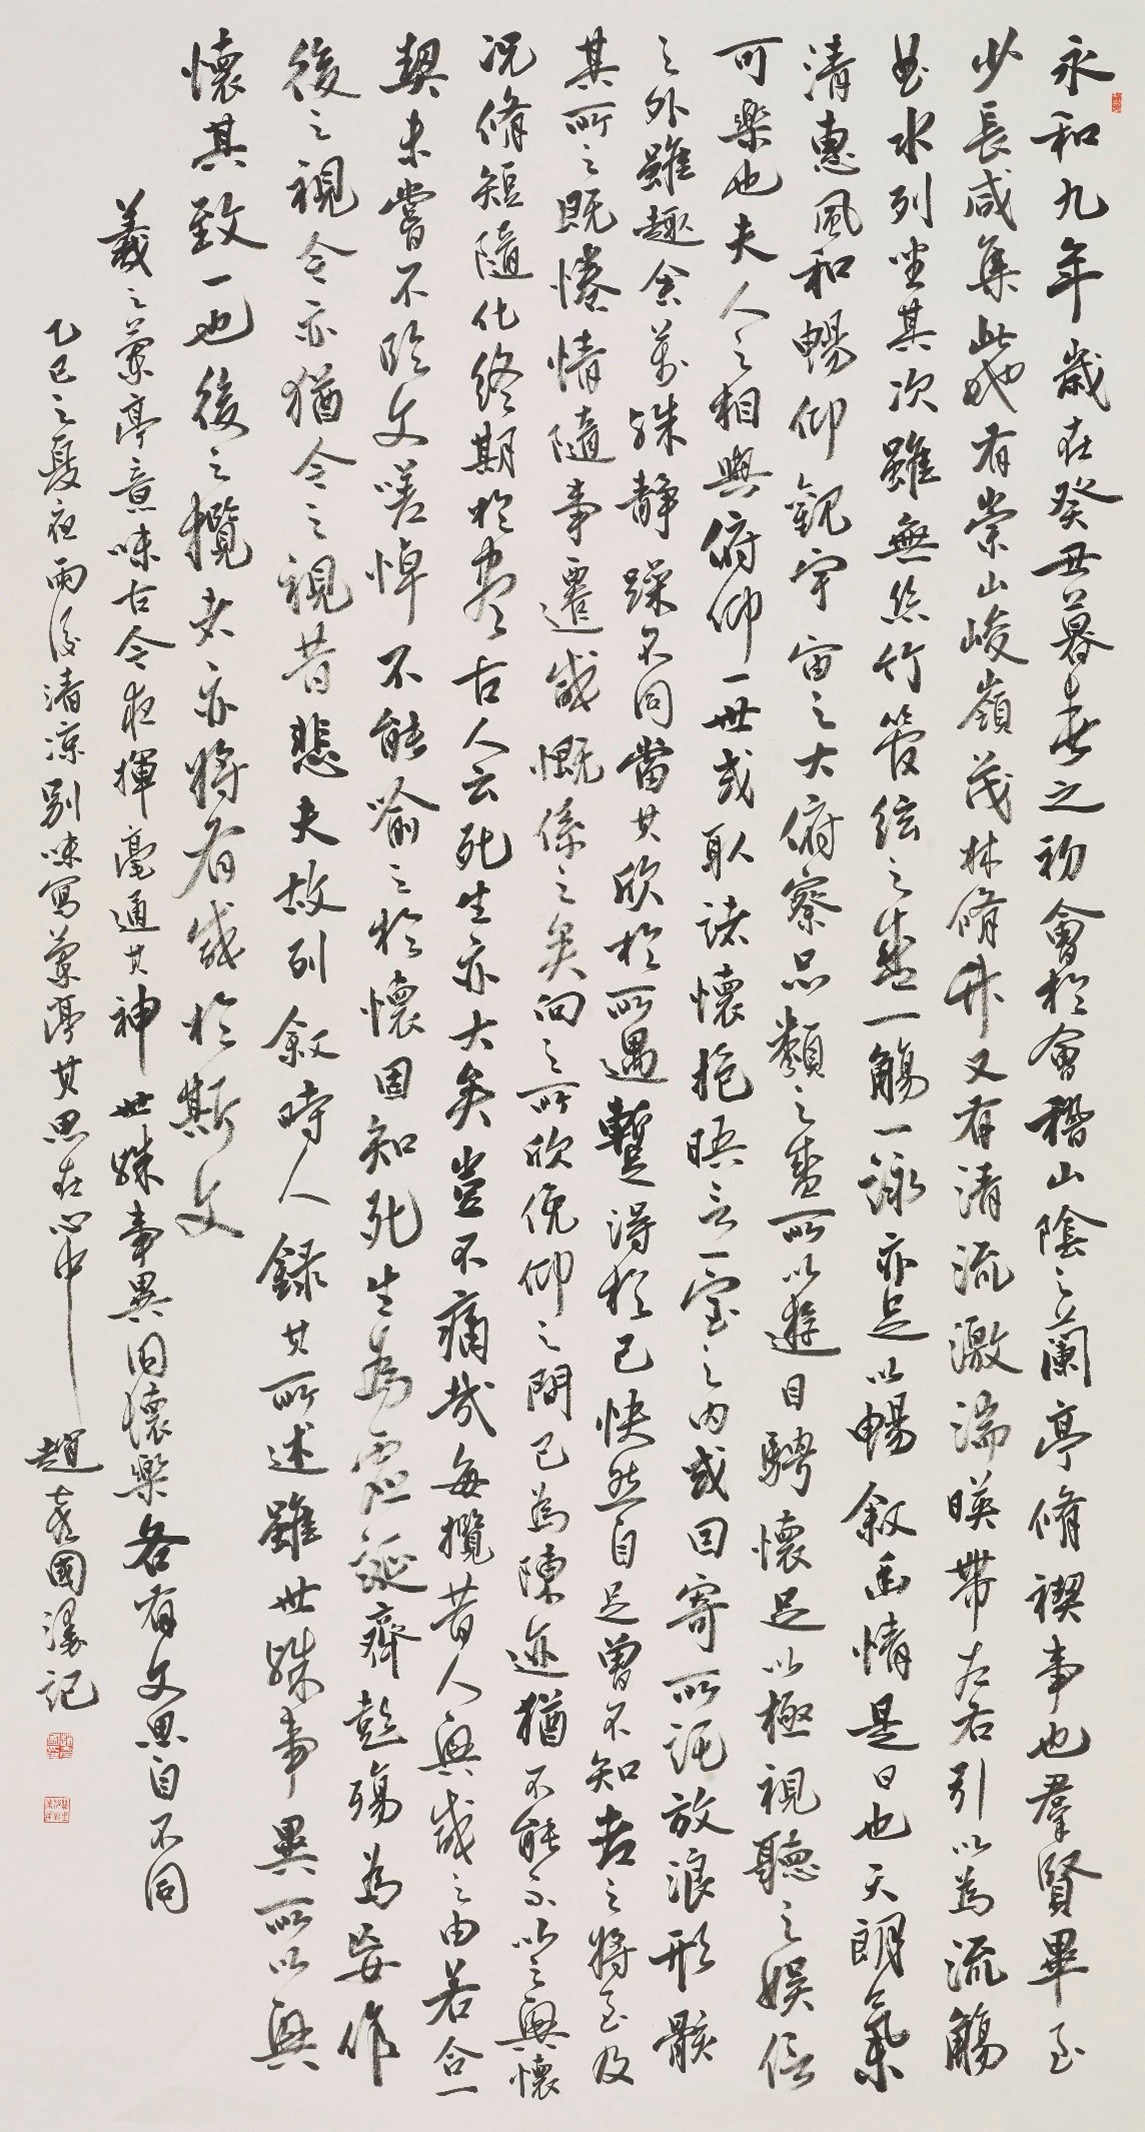 永和九年歲在癸丑暮春之初會於會稽山陰之蘭亭脩禊事也羣賢畢至
少長咸集此地有崇山峻嶺茂林脩竹又有清流激湍暎帶左右引以為流觴
曲水列坐其次雖無絲竹管絃之盛一觴一詠亦足以暢敘幽情是日也天朗氣
清惠風和暢仰觀宇宙之大俯察品類之盛所以遊目騁懷足以極視聽之娛信
可樂也夫人之相與俯仰一世或取諸懷抱晤言一室之內或因寄所託放浪形骸
之外雖趣舍萬殊靜躁不同當其欣於所遇暫得於己快然自足曾不知老之將至及
其所之既惓情隨事遷感慨係之矣向之所欣俛仰之間已為陳迹猶不能不以之興懷
況脩短隨化終期於盡古人云死生亦大矣豈不痛哉每攬昔人興感之由若合一
契未嘗不臨文嗟悼不能喻之於懷固知死生為虛誕齊彭殤為妄作
後之視今亦猶今之視昔悲夫故列敘時人錄其所述雖世殊事異所以興
懷其致一也後之攬者亦將有感於斯文
羲之蘭亭意味古今夜揮毫通其神世殊事異因懷樂各有文思自不同
乙巳之夏夜雨後清涼別味寫蘭亭其思在心中 趙喜國漫記